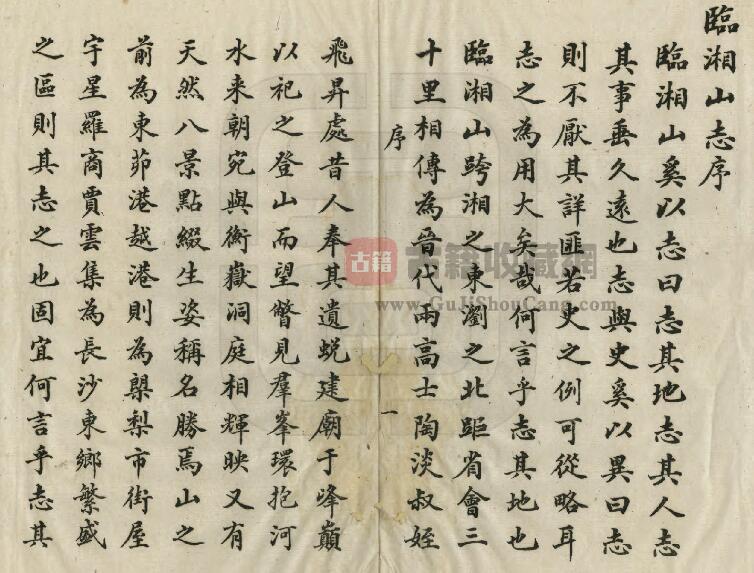 臨湘山志序
臨湘山奚以志曰志其地志其人志
其事垂久遠也志與史奚以異曰志
則不厭其詳匪若史之例可從略耳
志之為用大矣哉何言乎志其地也
臨湘山跨湘之東瀏之北距省會三
十里相傳為晉代兩高士陶淡叔姪
序
一
飛昇處昔人奉其遺蜕建廟于峰巔
以祀之登山而望瞥見羣峯環抱河
水来朝宛與衡嶽洞庭相輝映又有
天然八景點綴生姿稱名勝焉山之
前為東茆港越港則為㮚梨市街屋
宇星羅商賈雲集為長沙東鄉繁盛
之區則其志之也固宜何言乎志其
古籍
古籍收藏網
www.GuJiShouCang.com